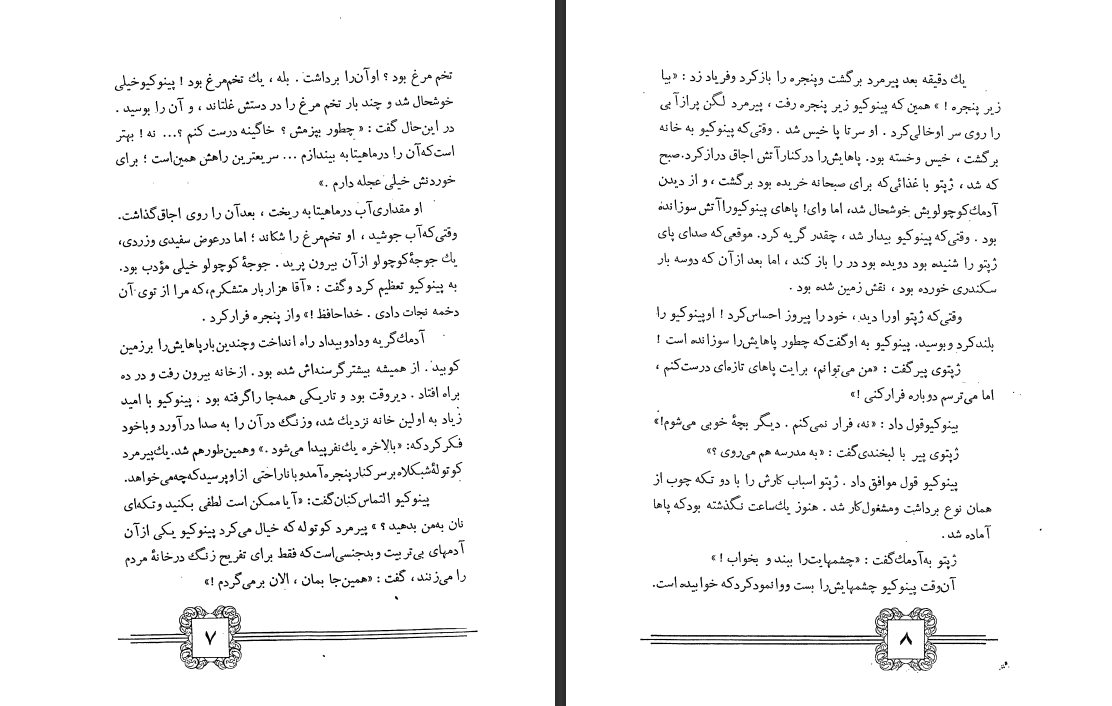 تخم مرغ بود ؟ اوآن‌را برداشت . بله ، یك تخم‌مرغ بود ! پینوکیوخیلی
خوشحال شد و چند بار تخم مرغ را در دستش غلتاند ، و آن را بوسید .
در این‌حال گفت : « چطور بپزمش ؟ خاگینه درست کنم ؟... نه ! بهتر
است‌که‌آن را درماهیتابه بیندازم ... سریعترین راهش همین‌است ؛ برای
خوردنش خیلی عجله دارم .»
او مقداری‌آب درماهیتابه ریخت ، بعدآن را روی اجاق‌گذاشت.
وقتی‌که‌آب جوشید ، او تخم‌مرغ را شکاند ؛ اما درعوض سفیدی وزردی،
یك جوجهٔ‌کوچولو ازآن بیرون پرید . جوجهٔ کوچولو خیلی مؤدب بود.
به پینوکیو تعظیم کرد وگفت : «آقا هزاربار متشکرم،که مرا از توی آن
دخمه نجات دادی . خداحافظ !» واز پنجره فرارکرد .
آدمك‌گریه ودادوبیداد راه انداخت وچندین‌بارپاهایش‌را برزمین
کوبید . از همیشه بیشترگرسنه‌اش شده بود . ازخانه بیرون رفت و در ده
براه افتاد . دیروقت بود و تاریکی همه‌جا راگرفته بود . پینوکیو با امید
زیاد به اولین خانه نزدیك شد، وزنگ درآن را به صدا درآورد وباخود
فکرکردکه: «بالاخره یك‌نفرپیدا می‌شود .» وهمین‌طورهم شد. یك‌پیرمرد
کوتولهٔ‌شبکلاه برسرکنارپنجره‌آمدوباناراحتی ازاوپرسیدکه‌چه‌می‌خواهد.
پینوکیو التماس‌کنان‌گفت: «آیا ممکن است لطفی بکنید وتکه‌ای
نان به‌من بدهید ؟ » پیرمرد کوتوله که خیال می‌کرد پینوکیو یکی ازآن
آدمهای بی‌تربیت وبدجنسی‌است‌که فقط برای تفریح زنگ درخانهٔ مردم
را می‌زنند ، گفت : «همین‌جا بمان ، الان برمی‌گردم !»
۷
یك دقیقه بعد پیرمرد برگشت وپنجره را بازکرد وفریاد زد : «بیا
زیر پنجره ! » همین که پینوکیو زیر پنجره رفت ، پیرمرد لگن پرازآبی
را روی سر اوخالی‌کرد . او سرتا پا خیس شد . وقتی‌که پینوکیو به خانه
برگشت ، خیس وخسته بود. پاهایش‌را درکنارآتش اجاق درازکرد.صبح
که شد ، ژپتو با غذائی‌که برای صبحانه خریده بود برگشت ، و از دیدن
آدمك‌کوچولویش خوشحال شد، اما وای! پاهای پینوکیوراآتش سوزانده
بود . وقتی‌که پینوکیو بیدار شد ، چقدر گریه کرد. موقعی‌که صدای پای
ژپتو را شنیده بود دویده بود در را باز کند ، اما بعد ازآن که دوسه بار
سکندری خورده بود ، نقش زمین شده بود .
وقتی‌که ژپتو اورا دید، خود را پیروز احساس‌کرد ! اوپینوکیو را
بلندکرد وبوسید. پینوکیو به اوگفت‌که چطور پاهایش‌را سوزانده است !
ژپتوی پیرگفت : «من می‌توانم، برایت پاهای تازه‌ای درست‌کنم ،
اما می‌ترسم دوباره فرارکنی !»
پینوکیوقول داد : «نه، فرار نمی‌کنم . دیگر بچهٔ خوبی می‌شوم!»
ژپتوی پیر با لبخندی‌گفت : «به مدرسه هم می‌روی ؟»
پینوکیو قول موافق داد . ژپتو اسباب کارش را با دو تکه چوب از
همان نوع برداشت ومشغول‌کار شد . هنوز یك‌ساعت نگذشته بودکه پاها
آماده شد .
ژپتو به‌آدمك‌گفت : «چشمهایت‌را ببند و بخواب ! »
آن‌وقت پینوکیو چشمهایش‌را بست ووانمودکردکه خوابیده است.
۸